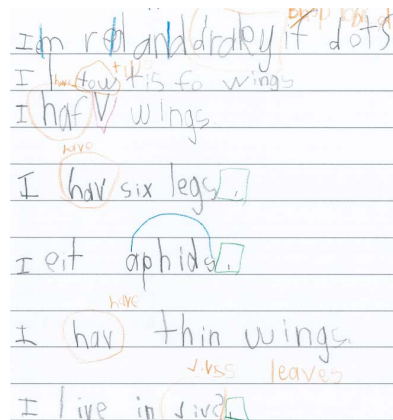 I'm red and draky it dots
I have tow t is fo wings
I haf V wings.
have
I hav six legs.
I eit aphids.
have
I hav thin wings.
leaves
I live in